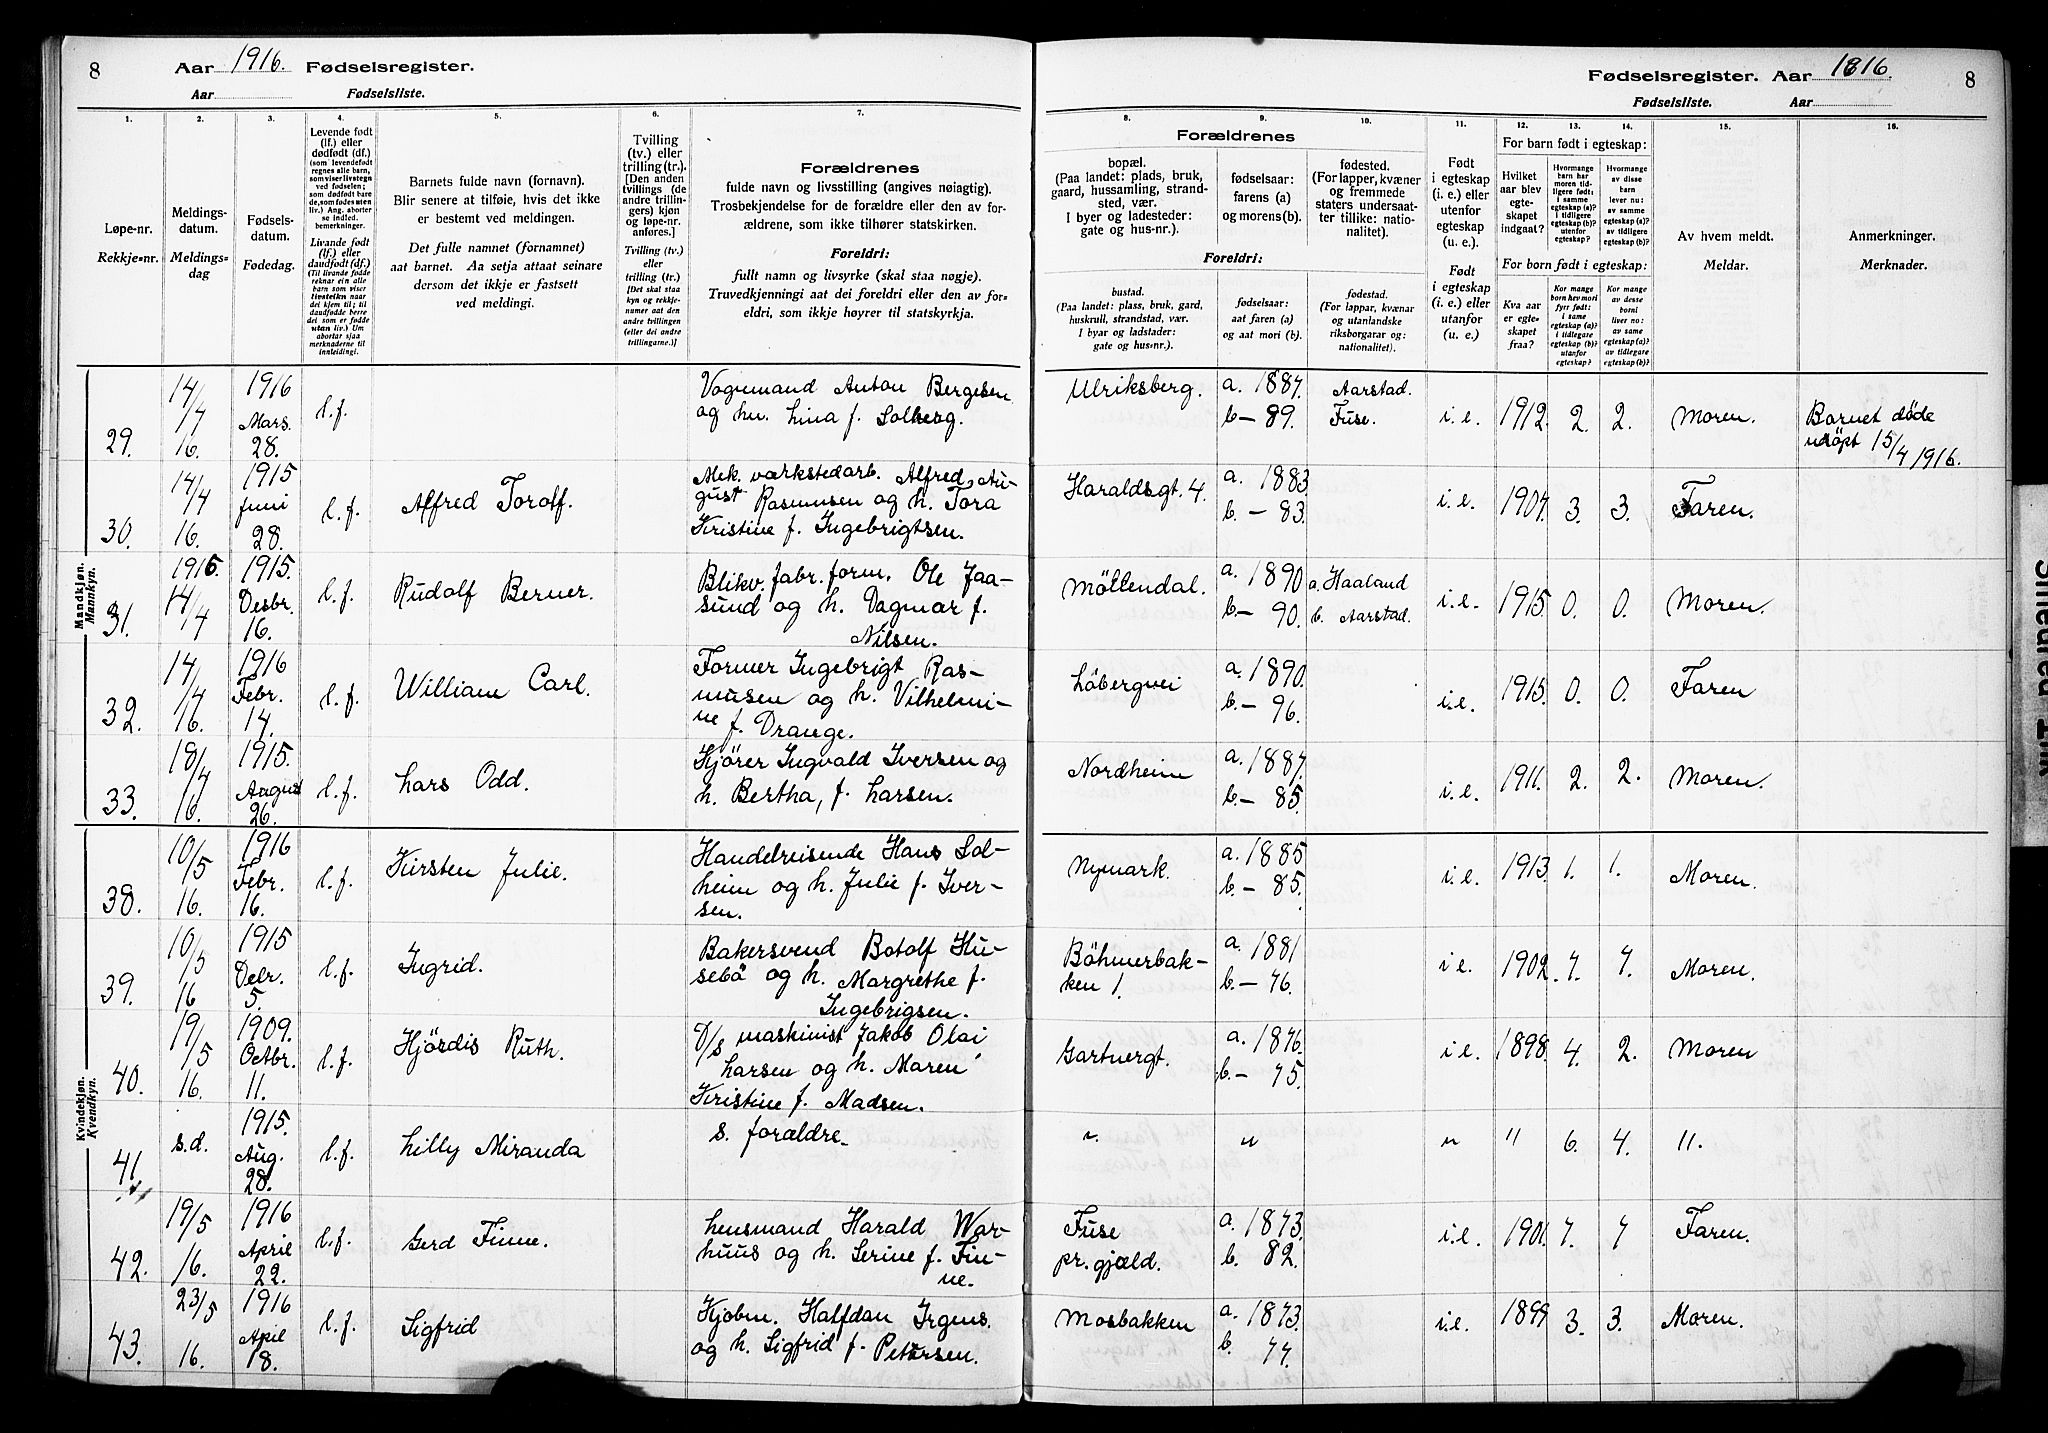 8 Aar 1916. Fødselsregister.
Aar Fødselsliste.
Fødselsregister. Aar 1816. 8
Fødselsliste. Aar
1. 2. 3. 4. 5. 6. 7.
Løpe-nr.
Rekkje-nr.
Meldings-
datum.
Meldings-
dag
Fødsels-
datum.
Fødedag.
Levende født
(lf.) eller
dødfødt (df.)
(som levendefødt
regnes alle barn,
som viser livstegn
ved fødselen;
som dødfødt bare
de, som fødes uten
liv.) Ang. aborter
se indled.
bemerkninger.
Livande født
(lf.) eller
daudfødt (df.)
(Til livande fødde
reknar ein alle
barn som viser
livsteikn naar
dei kjem til; til
daudfødde berre
dei som er fødde
utan liv.) Um
abortar sjaa
merknaderne til
innleidingi.
Barnets fulde navn (fornavn).
Blir senere at tilføie, hvis det ikke
er bestemt ved meldingen.
Det fulle namnet (fornamnet)
aat barnet. Aa setja attaat seinare
dersom det ikkje er fastsett
ved meldingi.
Tvilling
(tv.) eller
trilling (tr.).
[Den anden
tvillings (de
andre trillin-
gers) kjøn
og løpe-nr.
anføres.]
Tvilling (tv.)
eller
trilling (tr.)
[Det skal staa
kyn og rekkje-
numer aat den
andre tvillingen
(eller dei andre
trillingarne.)]
Forældrenes
fulde navn og livsstilling (angives nøiagtig).
Trosbekjendelse for de forældre eller den av for-
ældrene, som ikke tilhører statskirken.
Foreldri:
fullt namn og livsyrke (skal staa nøgje).
Truvedkjenningi aat dei foreldri eller den av for-
eldri, som ikkje høyrer til statskyrkja.
8. 9. 10. 11. 12. 13. 14. 15. 16.
Forældrenes
bopæl.
(Paa landet: plads, bruk,
gaard, hussamling, strand-
sted, vær.
I byer og ladesteder:
gate og hus-nr.).
fødselsaar:
farens (a)
og morens (b).
fødested.
(For lapper, kvæner
og fremmede
staters undersaat-
ter tillike: natio-
nalitet).
Foreldri:
bustad.
(Paa landet: plass, bruk, gard,
huskrull, strandstad, vær.
I byar og ladstader:
gate og hus-nr.).
fødselsaar:
aat faren (a)
og aat mori (b).
fødestad.
(For lappar, kvænar
og utanlandske
riksborgarar og:
nationalitet).
Født
i egteskap
(i. e.) eller
utenfor
egteskap
(u. e.).
Født
i egteskap
(i. e.) eller
utanfor
(u. e.).
For barn født i egteskap:
Hvilket
aar blev
egte-
skapet
indgaat?
Hvormange
barn har
moren tid-
ligere født:
i samme
egteskap (a)?
i tidligere
egteskap (b)?
utenfor
egteskap?
Hvormange
av disse
barn
lever nu:
av samme
egteskap (a)?
av tidligere
egteskap (b)?
For born født i egteskap:
Kva aar
er egte-
skapet
fraa?
Kor mange
born hev mori
fyrr født:
i same
egteskap (a)?
i tidlegare
egteskap (b)?
utanfor
egteskap?
Kor mange
av desse
borni
liver no:
av same
egteskap (a)?
av tidlegare
egteskap (b)?
Av hvem meldt.
Meldar.
Anmerkninger.
Merknader.
Mandkjøn.
Mannkyn.
29. 14/4 16. 1916 Mars. 28. l.f.
Vognmand Anton Bergesen
og hu. Lina f. Solberg.
Ulriksberg. a. 1887. b - 89. Aarstad. Fuse. i.e. 1912. 2. 2. Moren. Barnet døde
udöpt 15/4 1916.
30. 14/4 16. 1915 Juni 28. l.f. Alfred Torolf.
Mek. værkstedarb. Alfred Au-
gust Rasmusen og h. Tora
Kristine f. Ingebrigtsen.
Haraldsgt. 4. a. 1883. b. - 83. i.e. 1907. 3. 3. Faren.
31. 1916. 14/4 1915. Desbr. 16. l.f. Rudolf Berner.
Blikv. fabr. form. Ole Jaa-
sund og h. Dagmar f.
Nilsen.
Möllendal. a. 1890 b - 90. a. Haaland b. Aarstad. i.e. 1915. 0. 0. Moren.
32. 14/4 16. 1916 Febr. 14. l.f. William Carl.
Former Ingebrigt Ras-
musen og h. Vilhelmi-
ne f. Drange.
Löbergvei a. 1890. b. - 96. i.e. 1915. 0. 0. Faren
33. 18/4 16. 1915. August 26. l.f. Lars Odd.
Kjörer Ingvald Iversen og
h. Bertha, f. Larsen.
Nordheim a. 1887. b - 85. i.e. 1911. 2. 2. Moren.
Kvindekjøn.
Kvendkyn.
38. 10/5 16. 1916 Febr. 16. l.f. Kirsten Julie.
Handelreisende Hans Sol-
heim og h. Julie f. Iver-
sen.
Nymark. a. 1885 b. - 85. i.e. 1913. 1. 1. Moren.
39. 10/5 16 1915 Debr. 5. l.f. Ingrid.
Bakersvend Botolf Hu-
sebö og h. Margrethe f.
Ingebrigsen.
Böhmerbak-
ken 1. a. 1881 b. - 76. i.e. 1902. 7. 7. Moren.
40. 19/5 16. 1909. Octbr. 11. l.f. Hjördis Ruth.
D/s maskinist Jakob Olai
Larsen og h. Maren
Kristine f. Madsen.
Gartnergt. a. 1876. b. - 75. i.e. 1898. 4. 2. Moren
41. s.d. 1915. Aug. 28. l.f. Lilly Miranda
s. forældre.
" " " " 6. 4. 11.
42. 19/5 16. 1916 April 22. l.f. Gerd Finne.
Lensmand Harald War-
huus og h. Serine f. Fin-
ne.
Fuse
pr. gjæld. a. 1873. b. 82. i.e. 1901. 7. 7 Faren.
43. 23/5 16. 1916 April 18. l.f. Sigfrid
Kjöbm. Halfdan Irgens.
og h. Sigfrid f. Petersen.
Mosbakken a. 1873. b. 77. i.e. 1899 3. 3. Moren.